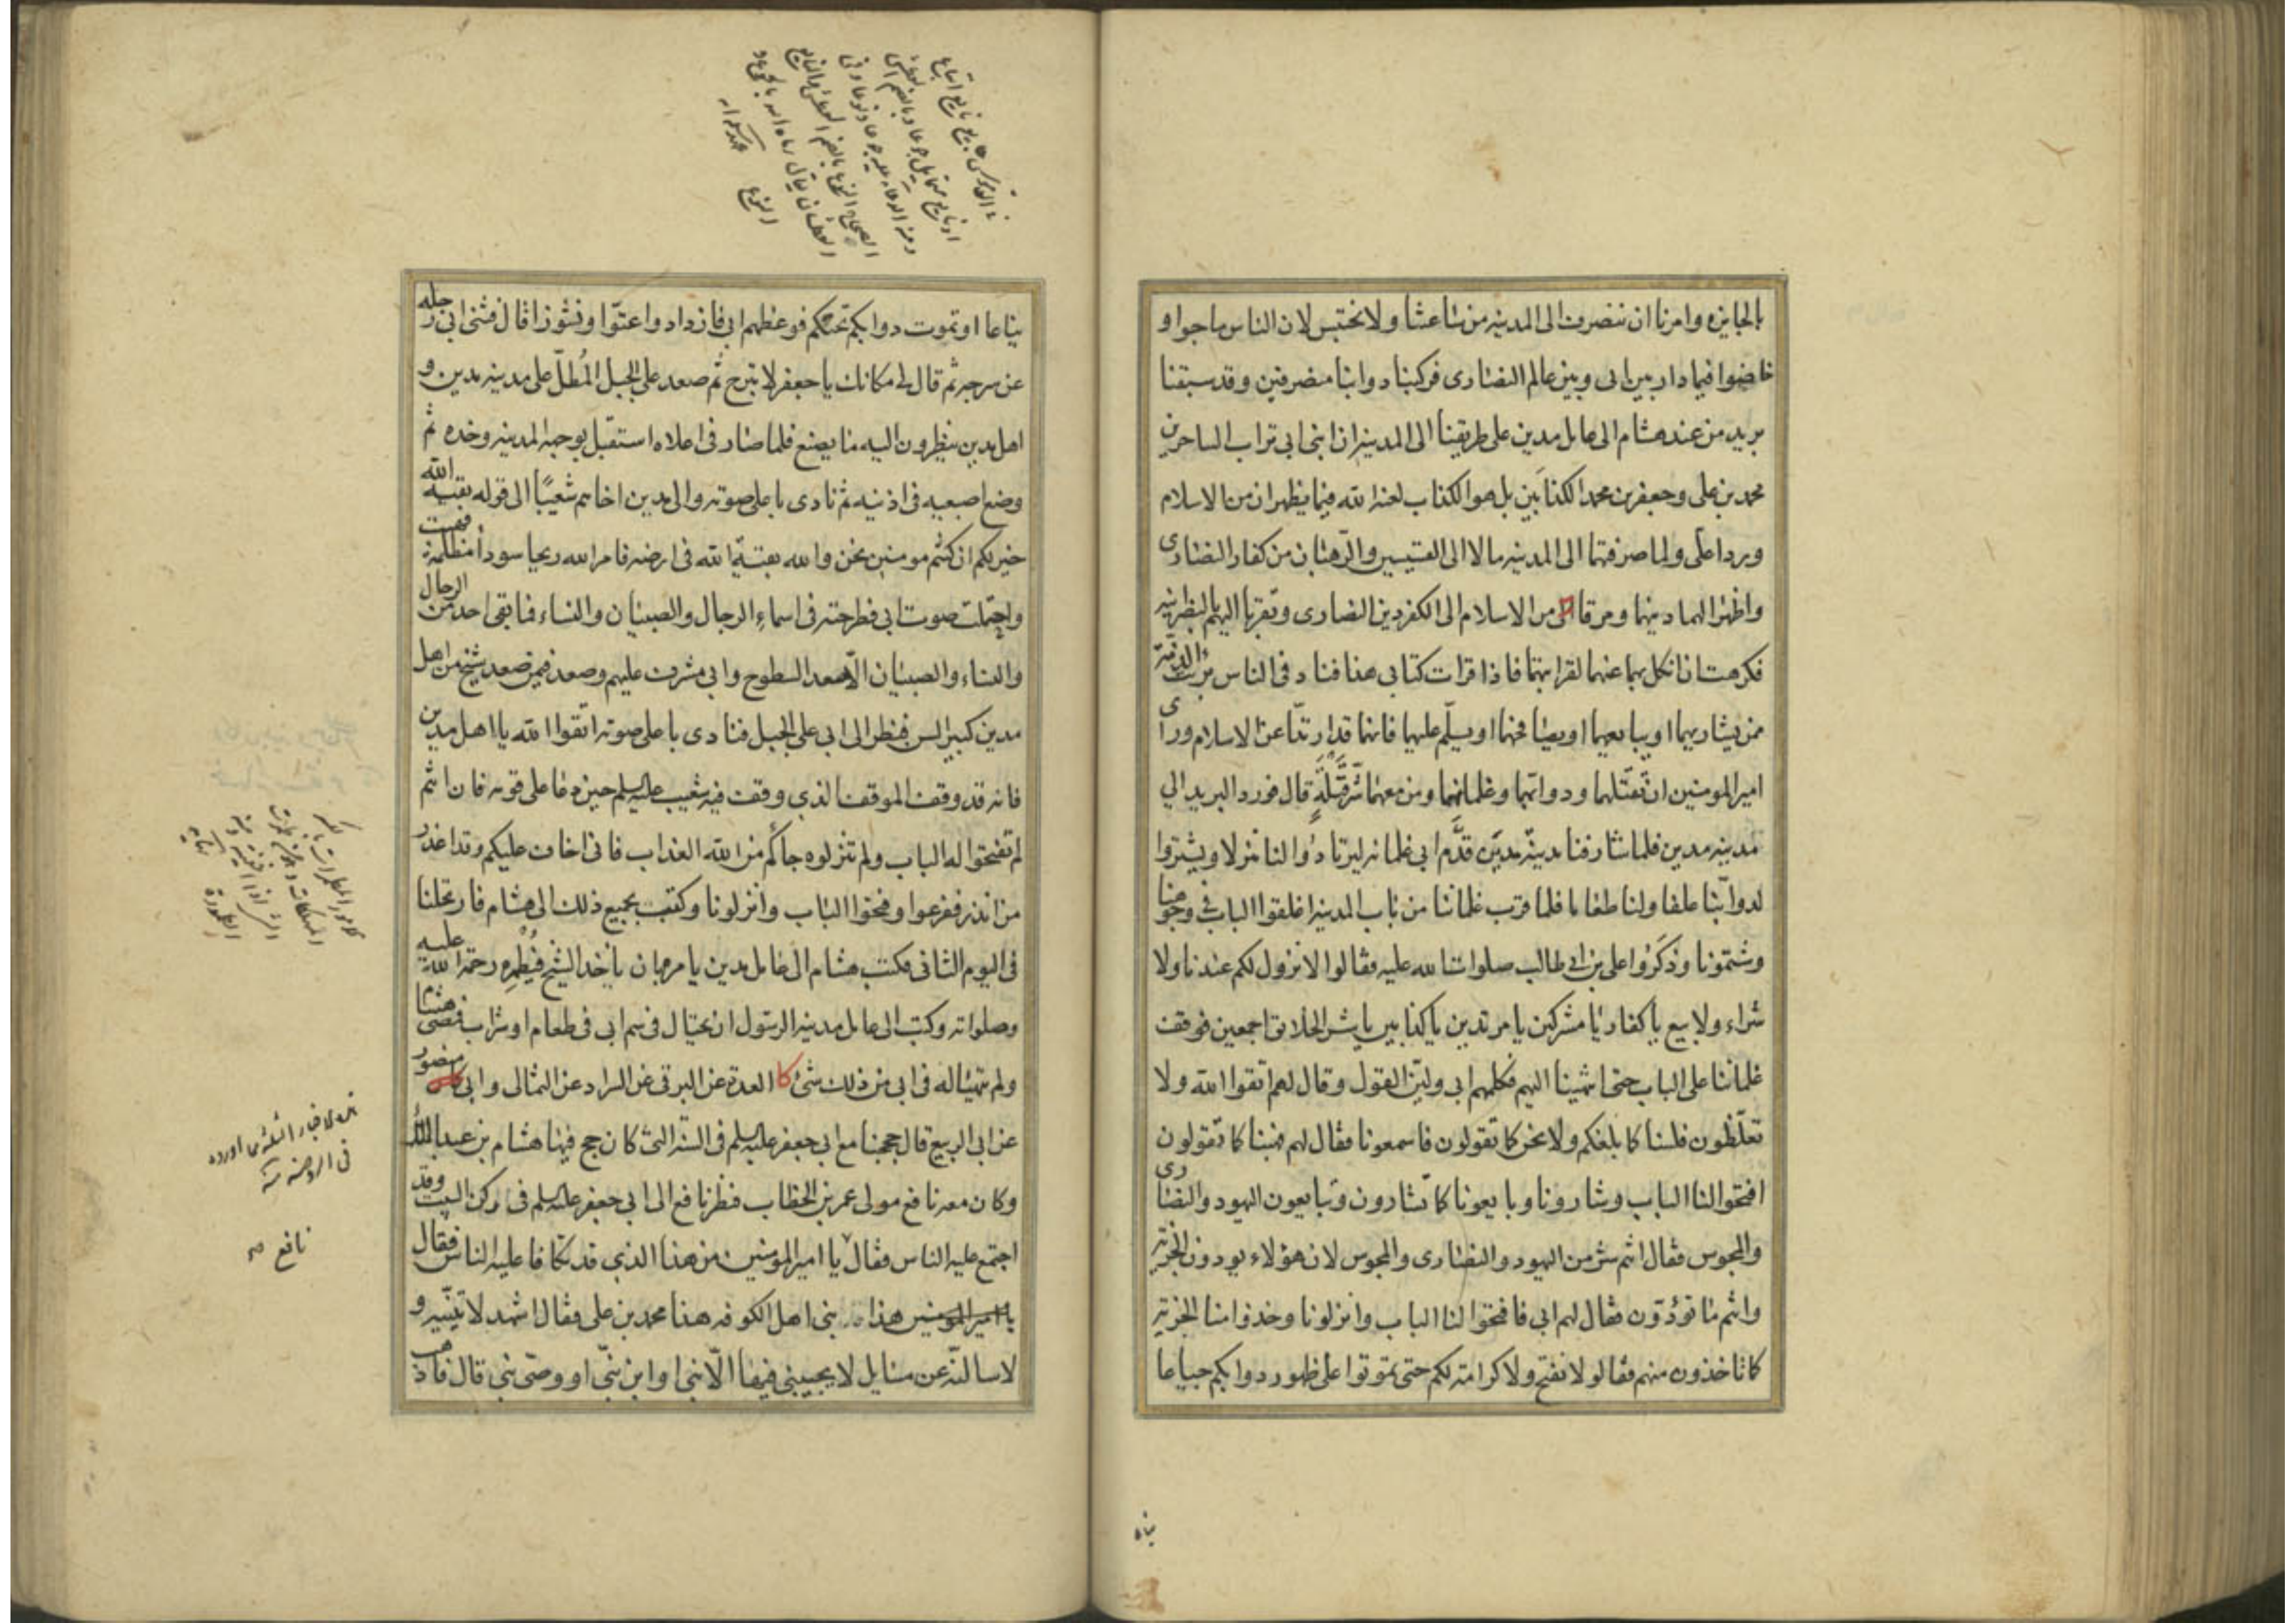 بالجايزه وامرنا ان ننصرف الى المدينه من ساعتنا ولا نحتبس لان الناس ماجوا و
خاضوا فيما دار بين ابى وبين عالم النصارى فركبنا دوابنا منصرفين وقد سبقنا
بريد من عند هشام الى عامل مدين على طريقنا الى المدينه ان ابنى ابى تراب الساحرين
محمد بن على وجعفر بن محمد الكذابين بل هو الكذاب لعنه الله فيما يظهران من الاسلام
وردا على ولما صرفتهما الى المدينه مالا الى القسيسين والرهبان من كفار النصارى
واظهرا لهما دينهما ومرقا من الاسلام الى الكفر دين النصارى وتقربا اليهم بالنصرانيه
فكرهت ان انكل بهما عنهما لقرابتهما فاذا قرات كتابى هذا فناد فى الناس برئت الذمة
ممن يشاريهما او يبايعهما او يصافحهما او يسلّم عليهما فانهما قد ارتدّا عن الاسلام وراى
امير المومنين ان تقتلهما ودوابهما وغلمانهما ومن معهما شرّ قتلةٍ قال فورد البريد الي
مدينه مدين فلما شارفنا مدينة مدين قدّم ابى غلمانه ليرتادوا لنا منزلا ويشتروا
لدوابّنا علفا ولنا طعاما فلما قرب غلماننا من باب المدينه اغلقوا الباب فى وجوهنا
وشتمونا وذكروا على بن ابى طالب صلوات الله عليه فقالوا لا نزول لكم عندنا ولا
شراء ولا بيع يا كفار يا مشركين يا مرتدين يا كذابين يا شر الخلايق اجمعين فوقف
غلماننا على الباب حتى انتهينا اليهم فكلمهم ابى وليّن القول وقال لهم اتقوا الله ولا
تغلّظون فلسنا كما بلغكم ولا نحن كما تقولون فاسمعونا فقال لهم فهبنا كما تقولون
افتحوا لنا الباب وشارونا وبايعونا كما تشارون وتبايعون اليهود والنصارى
والمجوس فقال انتم شر من اليهود والنصارى والمجوس لان هؤلاء يودون الجزية
وانتم ما تؤدّون فقال لهم ابى فافتحوا لنا الباب وانزلونا وخذوا منا الجزيه
كما تاخذون منهم فقالوا لا نفتح ولا كرامة لكم حتى تموتوا على ظهور دوابكم جياعا
نياعا او تموت دوابكم تحتكم فوعظهم ابى فازدادوا عتوّا ونشوزا قال فثنى ابى رجله
عن سرجه ثم قال لى مكانك يا جعفر لا تبرح ثم صعد على الجبل المُطلّ على مدينه مدين و
اهل مدين ينظرون اليه ما يصنع فلما صار فى اعلاه استقبل بوجهه المدينه وحده ثم
وضع اصبعيه فى اذنيه ثم نادى باعلى صوته والى مدين اخاهم شعيبًا الى قوله بقية الله
خير لكم ان كنتم مومنين نحن والله بقيّة الله فى ارضه فامر الله ريحا سوداً مظلمة فهبت
واحتملت صوت ابى فطرحته فى اسماع الرجال والصبيان والنساء فما بقى احد من الرجال
والنساء والصبيان الّا صعد السطوح وابى مشرف عليهم وصعد فيمن صعد شيخ من اهل
مدين كبير السن فنظر الى ابى على الجبل فنادى باعلى صوته اتّقوا الله يا اهل مدين
فانه قد وقف الموقف الذي وقف فيه شعيب عليه السلم حين دعا على قومه فان انتم
لم تفتحوا له الباب ولم تنزلوه جاكم من الله العذاب فانى اخاف عليكم وقد اعذر
من انذر ففزعوا وفتحوا الباب وانزلونا وكتب بجميع ذلك الى هشام فارتحلنا
فى اليوم الثانى فكتب هشام الى عامل مدين يامره بان ياخذ الشيخ فيُطمره رحمة الله عليه
وصلواته وكتب الى عامل مدينه الرسول ان يحتال فى سم ابى فى طعام او شراب فمضى هشام
ولم يتهيا له فى ابى من ذلك شئ كا العدة عن البرقى عن السراد عن الثمالى وابى منصور
عن ابى الربيع قال حججنا مع ابى جعفر عليه السلم فى السنة التى كان حج فيها هشام بن عبد الملك
وكان معه نافع مولى عمر بن الخطاب فنظر نافع الى ابى جعفر عليه السلم فى ركن البيت وقد
اجتمع عليه الناس فقال يا امير المومنين من هذا الذي قد تكافا عليه الناس فقال
يا امير المومنين هذا نبى اهل الكوفه هذا محمد بن على فقال اشهد لاتينّه و
لاسالنّه عن مسايل لا يجيبنى فيها الّا نبى او ابن نبّى او وصّى نبى قال فاذهب
نافع